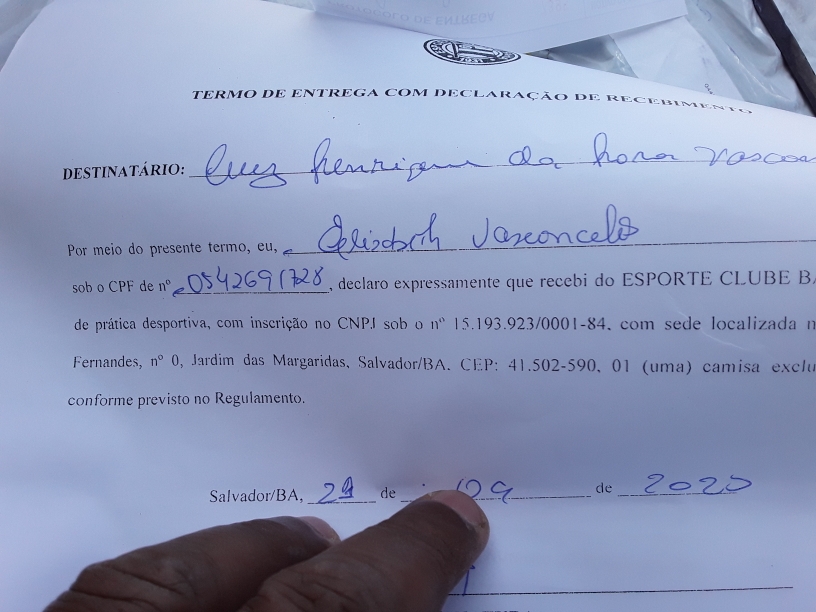 PROTOCOLO DE ENTREGA
1931
TERMO DE ENTREGA COM DECLARAÇÃO DE RECEBIMENTO
DESTINATÁRIO: Luiz Henrique da hora Vasco
Por meio do presente termo, eu, Vasconcelos
sob o CPF de nº 0542691728, declaro expressamente que recebi do ESPORTE CLUBE BA
de prática desportiva, com inscrição no CNPJ sob o nº 15.193.923/0001-84, com sede localizada n
Fernandes, nº 0, Jardim das Margaridas, Salvador/BA. CEP: 41.502-590, 01 (uma) camisa exclu
conforme previsto no Regulamento.
Salvador/BA, de 09 de 2020